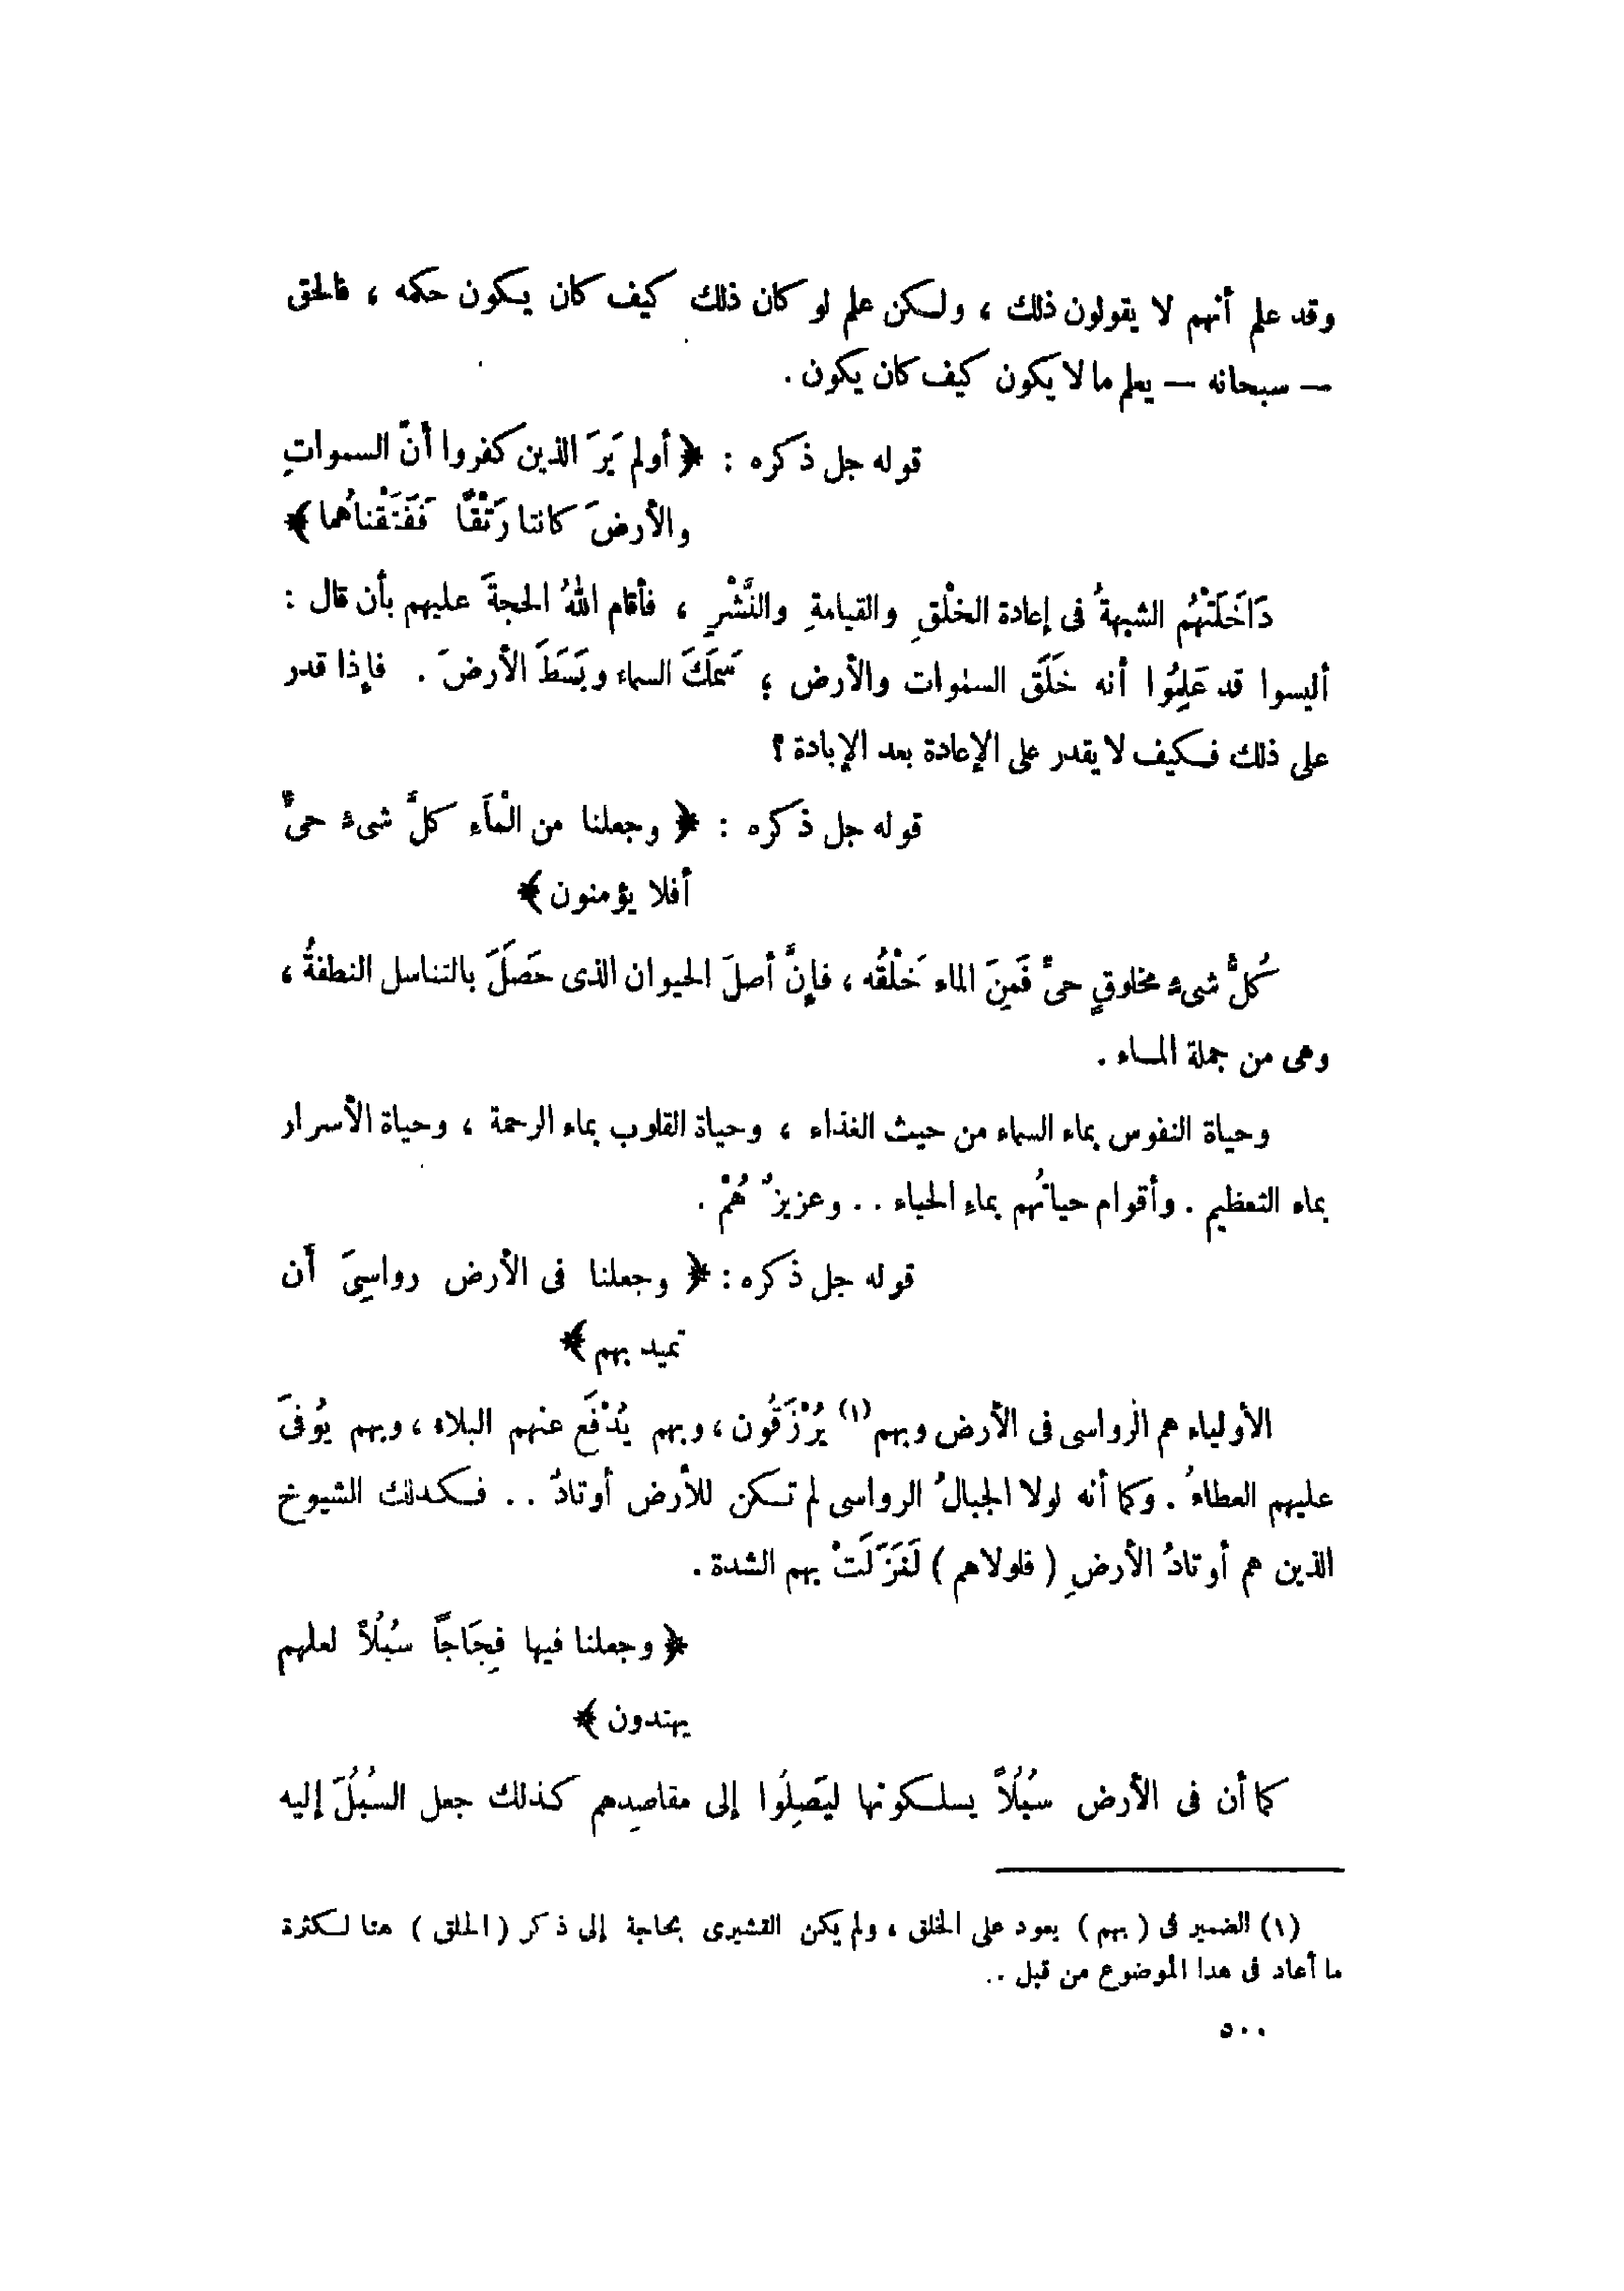 وقد علم أنهم لا يقولون ذلك ، ولكن علم لو كان ذلك كيف كان يكون حكمه ، فالحق
— سبحانه — يعلم ما لا يكون كيف كان يكون .
قوله جل ذكره : ﴿ أولم يَرَ الذين كفروا أنَّ السمواتِ
والأرضَ كانتا رَتْقًا فَفَتَقْناهُما ﴾
دَاخَلَتْهُم الشبهةُ فى إعادة الخلْقِ والقيامةِ والنَّشْرِ ، فأقام اللهُ الحجةَ عليهم بأن قال :
أليسوا قد عَلِمُوا أنه خَلَقَ السمٰوات والأرض ؛ سَمَكَ السماء وبَسَطَ الأرضَ . فإذا قدر
على ذلك فكيف لا يقدر على الإعادة بعد الإبادة ؟
قوله جل ذكره : ﴿ وجعلنا من الْمآءِ كلَّ شىء حىٍّ
أفلا يؤمنون ﴾
كُلُّ شىء مخلوقٍ حىٍّ فَمِنَ الماء خَلْقُه ، فإنَّ أصلَ الحيوان الذى حَصَلَ بالتناسل النطفةُ ،
وهى من جملة المـاء .
وحياة النفوس بماء السماء من حيث الغذاء ، وحياة القلوب بماء الرحمة ، وحياة الأسرار
بماء التعظيم . وأقوام حياتُهم بماءِ الحياء . . وعزيزٌ هُمْ .
قوله جل ذكره : ﴿ وجعلنا فى الأرض رواسِىَ أن
تميد بهم ﴾
الأولياء هم الرواسى فى الأرض وبهم (١) يُرْزَقُون ، وبهم يُدْفَع عنهم البلاء ، وبهم يُوفىَ
عليهم العطاءُ . وكما أنه لولا الجبالُ الرواسى لم تكن للأرض أوتادٌ . . فكذلك الشيوخ
الذين هم أوتادُ الأرضِ ( فلولاهم ) لَنَزَلَتْ بهم الشدة .
﴿ وجعلنا فيها فِجَاجاً سُبُلاً لعلهم
يهتدون ﴾
كما أن فى الأرض سُبُلاً يسلكونها ليَصِلُوا إلى مقاصدِهم كذلك جعل السُبُلَ إليه
(١) الضمير فى ( بهم ) يعود على الخلق ، ولم يكن القشيرى بحاجة إلى ذكر ( الخلق ) هنا لكثرة
ما أعاد فى هذا الموضوع من قبل . .
٥٠٠